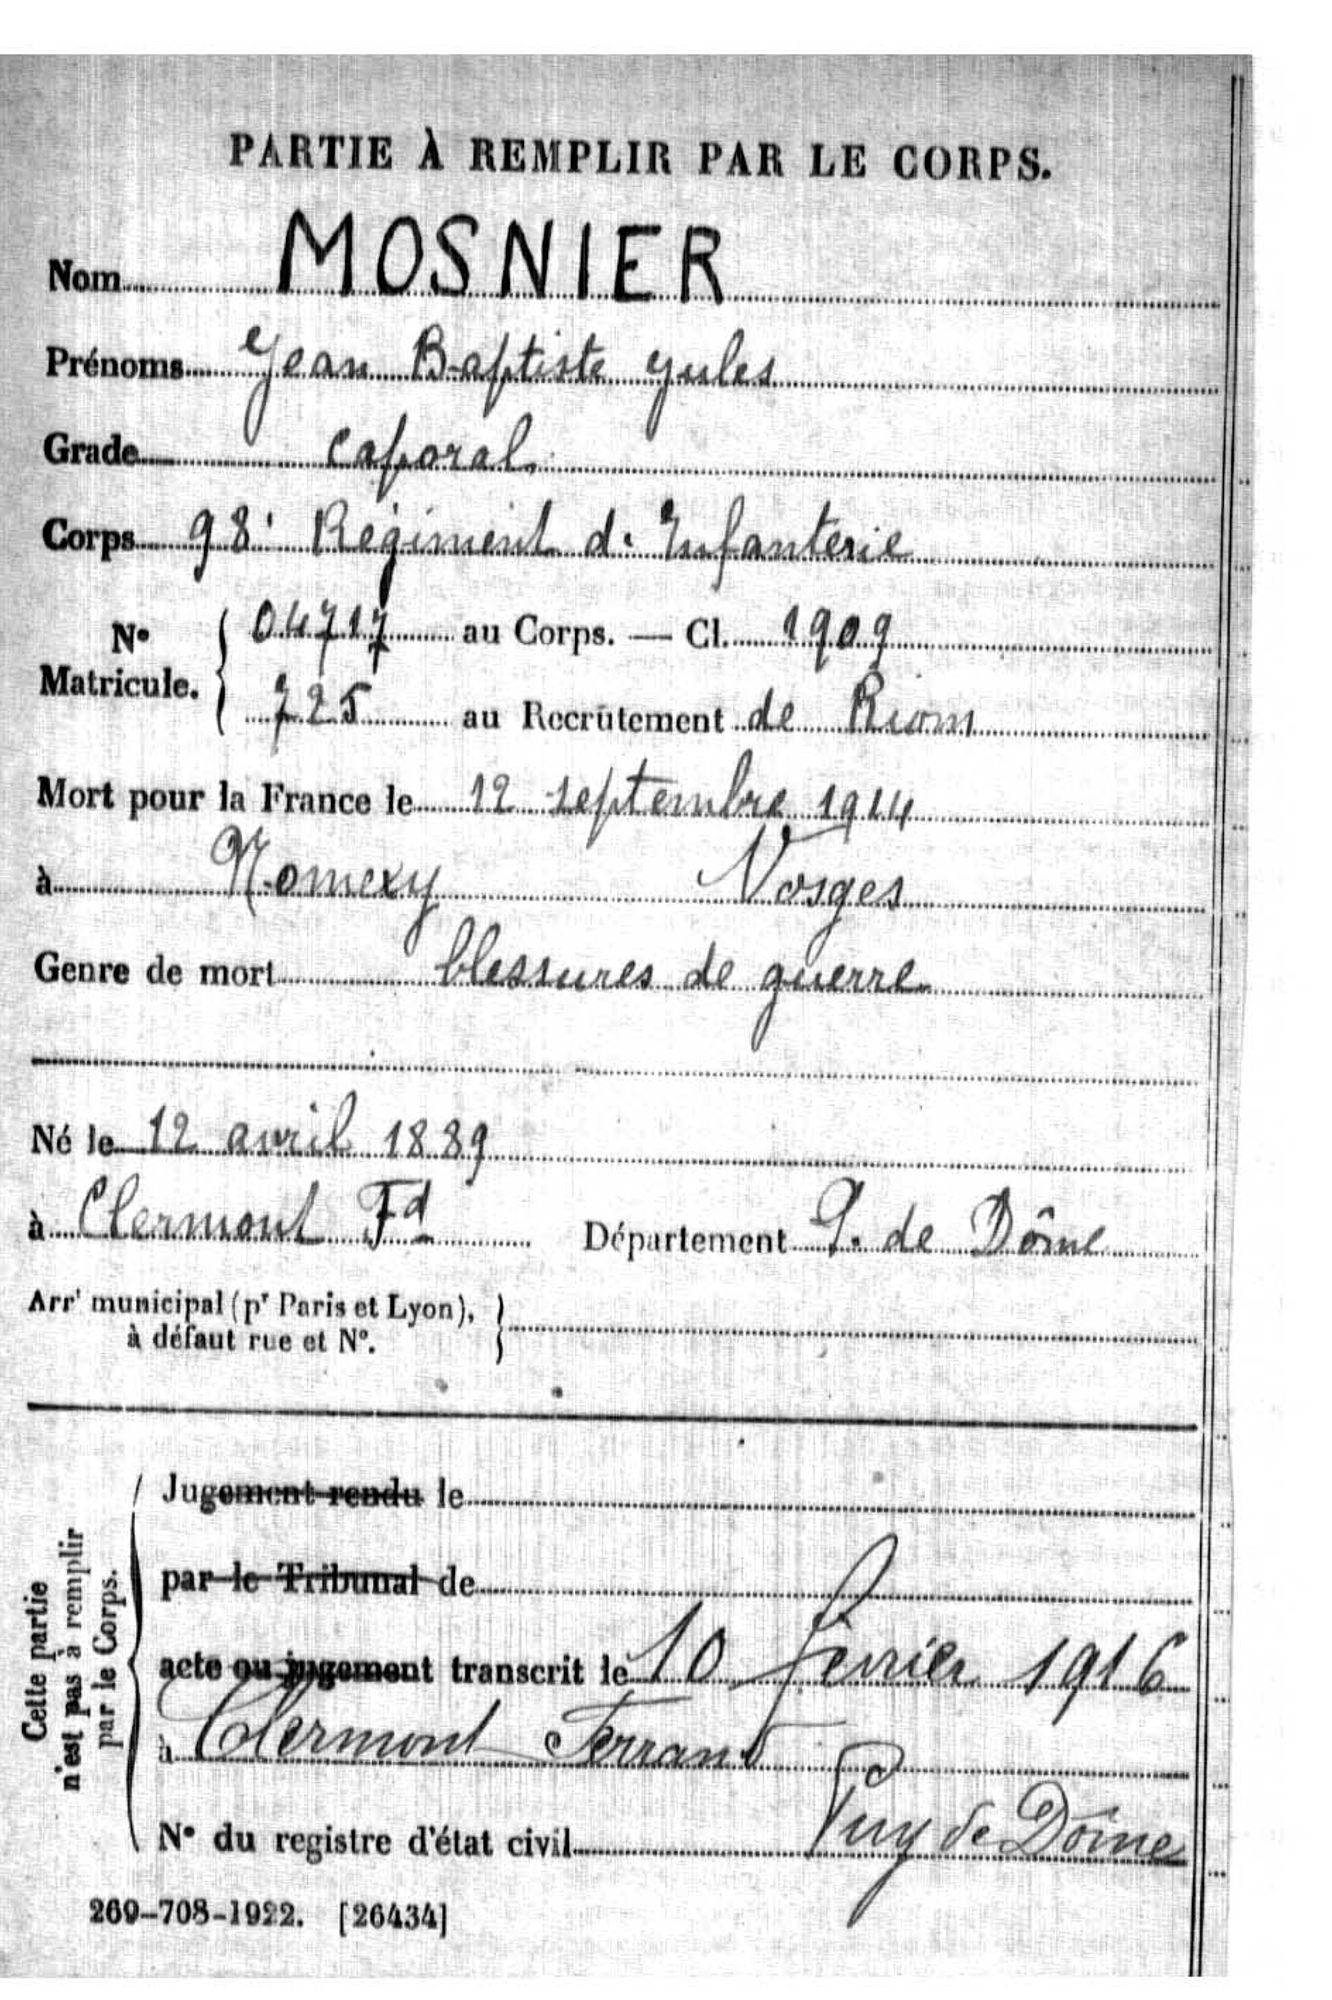 PARTIE À REMPLIR PAR LE CORPS.
Nom MOSNIER
Prénoms Jean Baptiste Jules
Grade caporal
Corps 98e Régiment d'Infanterie
N° Matricule. { 04717 au Corps. — Cl. 1909
725 au Recrutement de Riom
Mort pour la France le 12 septembre 1914
à Nomexy Vosges
Genre de mort blessures de guerre
Né le 12 avril 1889
à Clermont Fd Département P. de Dôme
Arrt municipal (pr Paris et Lyon),
à défaut rue et N°.
Cette partie
n'est pas à remplir
par le Corps.
Jugement rendu le
par le Tribunal de
acte ou jugement transcrit le 10 février 1916
à Clermont Ferrand
Puy de Dôme
N° du registre d'état civil
269-708-1922. [26434]